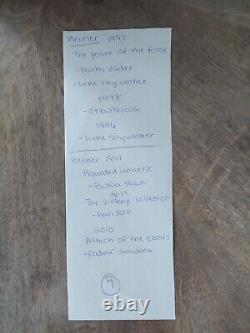 Kenner 1997
The power of the force
- Darth Vader
- Luke Skywalker
1998
- Chewbacca
1996
- Luke Skywalker
Kenner 2011
Expanded universe
- Bastila Shan
2011
The vintage collection
- Han Solo
2010
Attack of the Clones
- Padmé Amidala
7